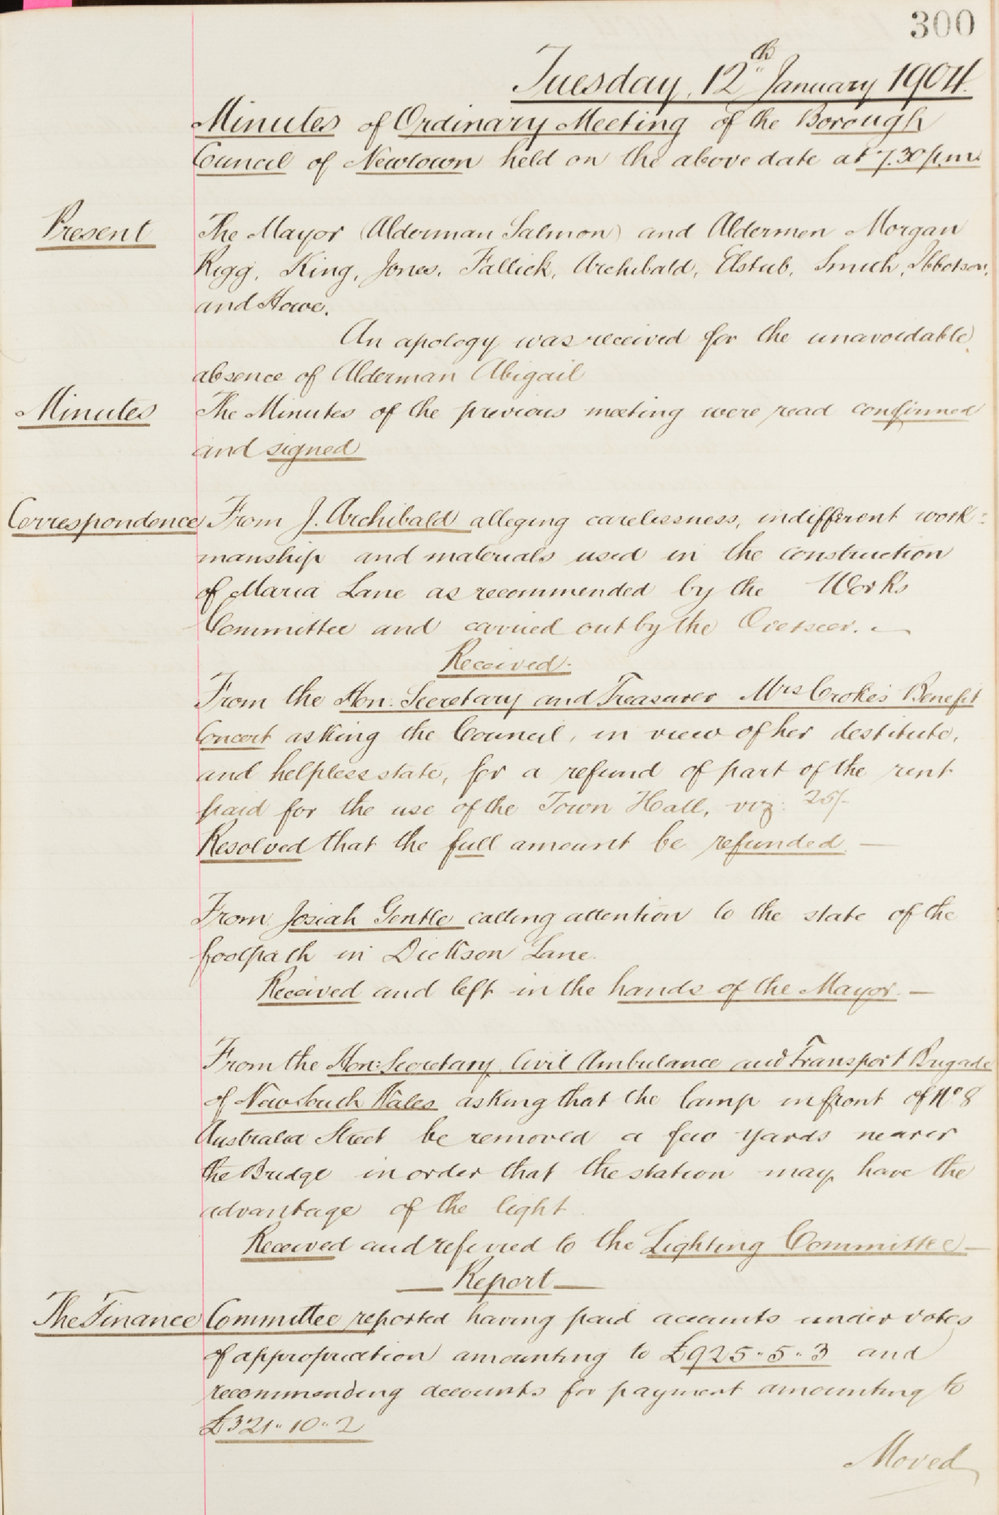 300
Tuesday, 12th January 1904.
Minutes of Ordinary Meeting of the Borough
Council of Newtown held on the above date at 7.30 p.m.
Present The Mayor (Alderman Salmon) and Aldermen Morgan
Rigg, King, Jones, Fallick, Archibald, Elstub, Smith, Ibbotson,
and Howe.
An apology was received for the unavoidable
absence of Alderman Abigail
Minutes The Minutes of the previous meeting were read confirmed
and signed
Correspondence From J. Archibald alleging carelessness, indifferent work-
manship and materials used in the construction
of Maria Lane as recommended by the Works
Committee and carried out by the Overseer. —
Received.
From the Hon. Secretary and Treasurer Mrs Croke's Benefit
Concert asking the Council, in view of her destitute,
and helpless state, for a refund of part of the rent
paid for the use of the Town Hall, viz: 25/-
Resolved that the full amount be refunded. —
From Josiah Gentle calling attention to the state of the
footpath in Dickson Lane.
Received and left in the hands of the Mayor. —
From the Hon: Secretary Civil Ambulance and Transport Brigade
of New South Wales asking that the lamp in front of No 8
Australia Street be removed a few yards nearer
the Bridge in order that the station may have the
advantage of the light.
Received and referred to the Lighting Committee. —
— Report —
The Finance Committee reported having paid accounts under votes
of appropriation amounting to £925-5-3 and
recommending accounts for payment amounting to
£321-10-2
Moved